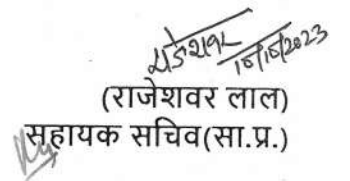 राजेश्वर 10/10/2023
(राजेशवर लाल)
सहायक सचिव(सा.प्र.)